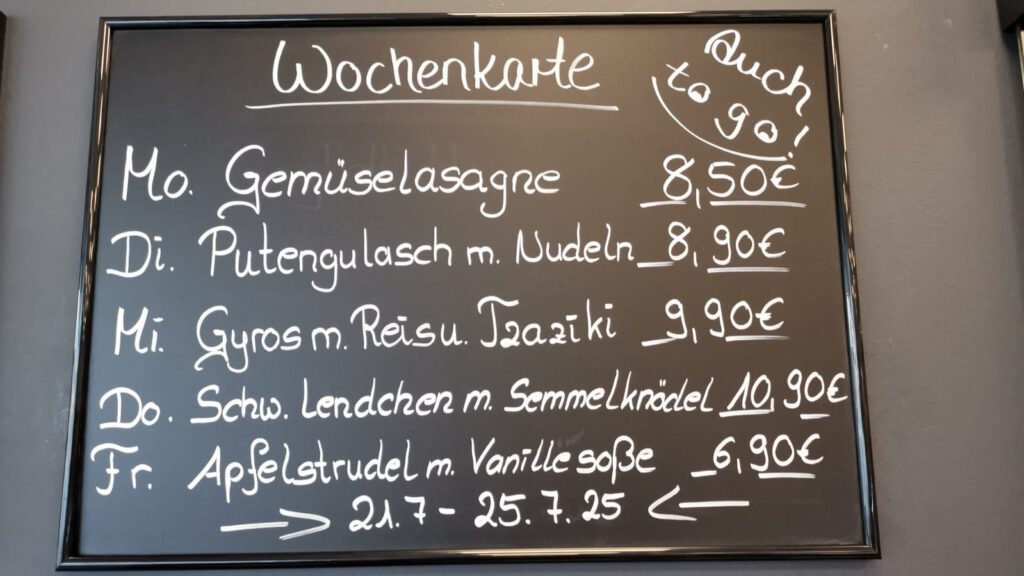 Wochenkarte
Auch
to go!
Mo. Gemüselasagne 8,50€
Di. Putengulasch m. Nudeln 8,90€
Mi. Gyros m. Reis u. Tzaziki 9,90€
Do. Schw. Lendchen m. Semmelknödel 10,90€
Fr. Apfelstrudel m. Vanillesoße 6,90€
→ 21.7 - 25.7.25 ←